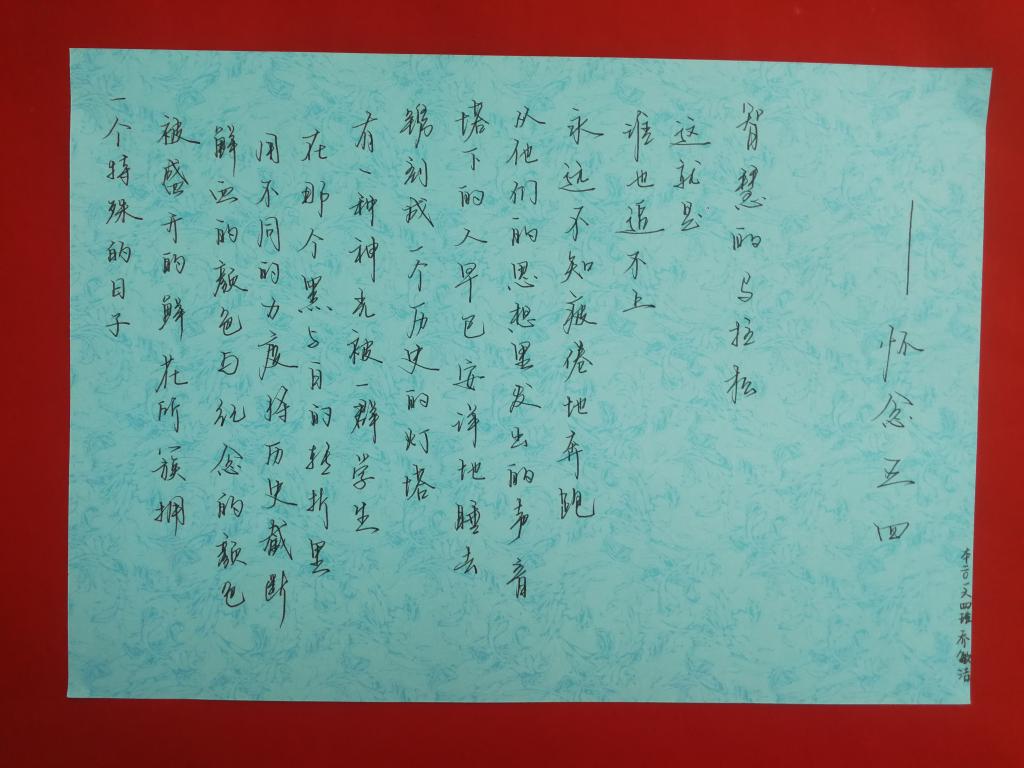 一个特殊的日子
被盛开的鲜花所簇拥
鲜血的颜色与纪念的颜色
用不同的力度将历史截断
在那个黑与白的转折里
有一种神光被一群学生
镌刻成一个历史的灯塔
塔下的人早已安详地睡去
从他们的思想里发出的声音
永远不知疲倦地奔跑
谁也追不上
这就是
智慧的马拉松
——怀念五四
四班 乔敏洁